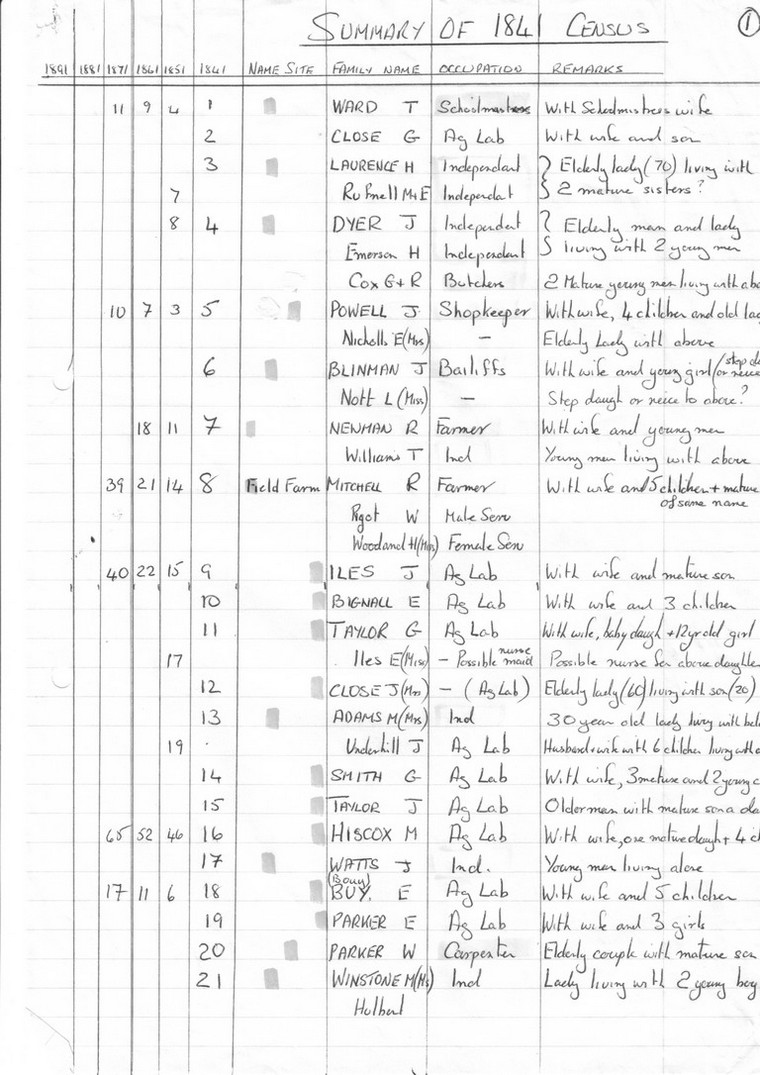 SUMMARY OF 1841 CENSUS 1
1891 1881 1871 1861 1851 1841 NAME SITE FAMILY NAME OCCUPATION REMARKS
11 9 4 1 WARD T Schoolmaster With Schoolmistress wife
2 CLOSE G Ag Lab With wife and son
3 LAURENCE H Independant Elderly lady (70) living with
7 M+E Independat 2 mature sisters?
8 4 DYER J Independent Elderly man and lady
Emerson H Independant living with 2 young men
Cox G+R Butchers 2 Mature young men living with abo
10 7 3 5 POWELL J Shopkeeper With wife, 4 children and old lad
Nicholls E (Mrs) - Elderly Lady with above
6 BLINMAN J Bailiffs With wife and young girl (step da or neice
Nott L (Miss) - Step daugh or neice to above?
18 11 7 NENMAN R Farmer With wife and young men
Williams T Ind Young men living with above
39 21 14 8 Field Farm MITCHELL R Farmer With wife and 5 children + mature
of same name
Pigot W Male Serv
Woodand H (Mrs) Female Serv
40 22 15 9 ILES J Ag Lab With wife and mature son
10 BIGNALL E Ag Lab With wife and 3 children
11 TAYLOR G Ag Lab With wife, baby daugh + 12yr old girl
17 Iles E (Miss) - Possible nurse maid Possible nurse for above daughte
12 CLOSE J (Mrs) - (Ag Lab) Elderly lady (60) living with son (20)
13 ADAMS M (Mrs) Ind 30 year old lady living with bel
19 Underhill J Ag Lab Husband + wife with 6 children living with
14 SMITH G Ag Lab With wife, 3 mature and 2 young c
15 TAYLOR J Ag Lab Older man with mature son a da
65 52 46 16 HISCOX M Ag Lab With wife, one mature daugh + 4 c
17 WATTS J Ind. Young men living alone
(Bouy)
17 11 6 18 BUY. E Ag Lab With wife and 5 children
19 PARKER E Ag Lab With wife and 3 girls
20 PARKER W Carpenter Elderly couple with mature son
21 WINSTONE M (Ms) Ind Lady living with 2 young boy
Hulbert